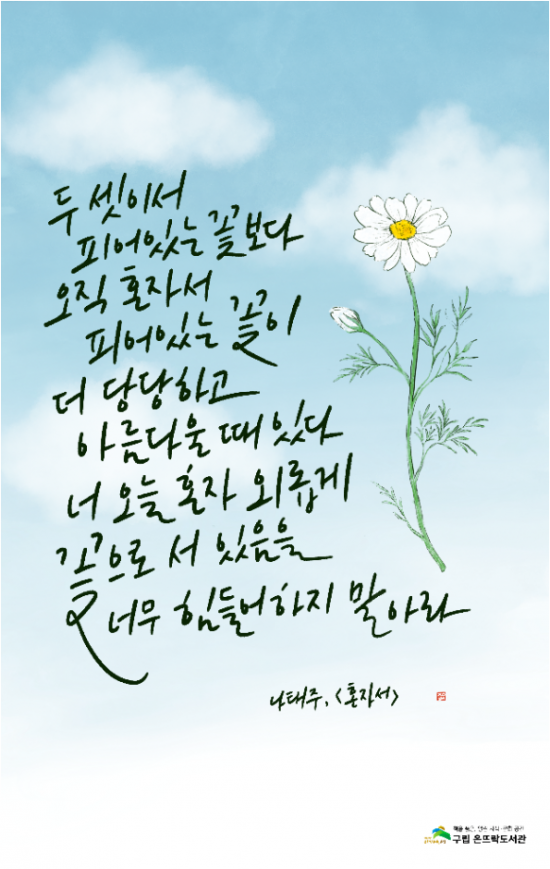 두 셋이서
피어있는 꽃보다
오직 혼자서
피어있는 꽃이
더 당당하고
아름다울 때 있다
너 오늘 혼자 외롭게
꽃으로 서 있음을
너무 힘들어하지 말아라
나태주, <혼자서>
구립 온뜨락도서관